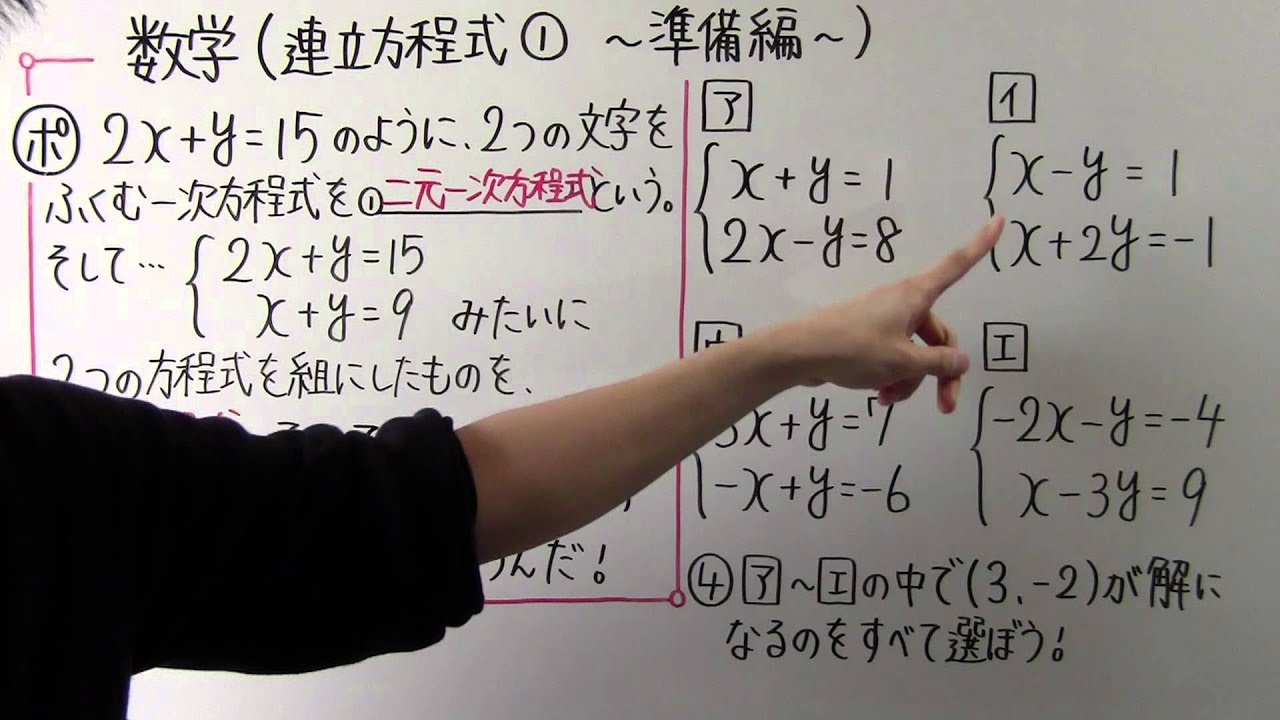 数学(連立方程式① ～準備編～)
ポ 2x+y=15のように、2つの文字を
ふくむ一次方程式を①二元一次方程式という。
そして… 2x+y=15
x+y=9 みたいに
2つの方程式を組にしたものを、
んだ!
ア
x+y=1
2x-y=8
イ
x-y=1
x+2y=-1
x+y=7
-x+y=-6
エ
-2x-y=-4
x-3y=9
④ ア～エの中で(3,-2)が解に
なるのをすべて選ぼう!